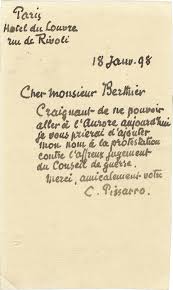 Paris
Hotel du Louvre
rue de Rivoli
18 Janv. 98
Cher Monsieur Berthier
Craignant de ne pouvoir
aller à l'Aurore aujourd'hui
je vous prierai d'ajouter
mon nom à la protestation
contre l'affreux jugement
du Conseil de guerre.
Merci, amicalement votre
C. Pissarro.